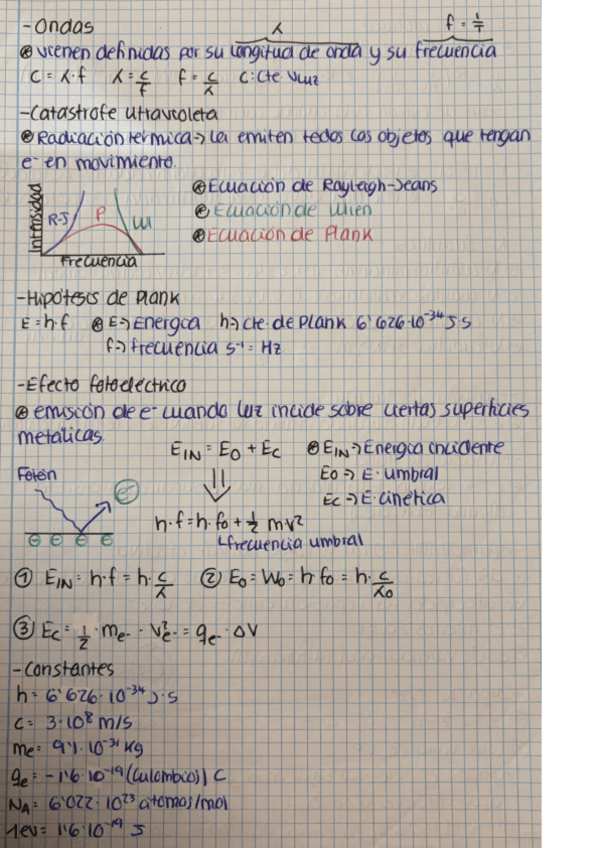 -Ondas λ f = 1/T
⊛ vienen definidas por su longitud de onda y su frecuencia
C = λ·f λ = c/f f = c/λ c: cte vluz
-Catástrofe ultravioleta
⊛ Radiación térmica → la emiten todos los objetos que tengan
e⁻ en movimiento.
Intensidad
R-J P W
Frecuencia
⊛ Ecuación de Rayleigh-Jeans
⊛ Ecuación de Wien
⊛ Ecuación de Plank
-Hipótesis de Plank
E = h·f ⊛ E → Energía h → cte. de Plank 6'626·10⁻³⁴ J·s
f → frecuencia s⁻¹ = Hz
-Efecto fotoeléctrico
⊛ emisión de e⁻ cuando luz incide sobre ciertas superficies
metálicas.
Fotón e⁻
⊖ ⊖ ⊖ ⊖
E_IN = E_0 + E_C
⇓
h·f = h·f₀ + 1/2 mv²
↳frecuencia umbral
⊛ E_IN → Energía incidente
E_0 → E. umbral
E_C → E. cinética
① E_IN = h·f = h·c/λ ② E_0 = W_0 = h·f₀ = h·c/λ₀
③ E_C = 1/2 · m_e⁻ · v²_e⁻ = q_e⁻ · ΔV
-Constantes
h = 6'626·10⁻³⁴ J·s
c = 3·10⁸ m/s
m_e = 9'1·10⁻³¹ kg
q_e = -1'6·10⁻¹⁹ (culombios) C
N_A = 6'022·10²³ átomos/mol
1ev = 1'6·10⁻¹⁹ J